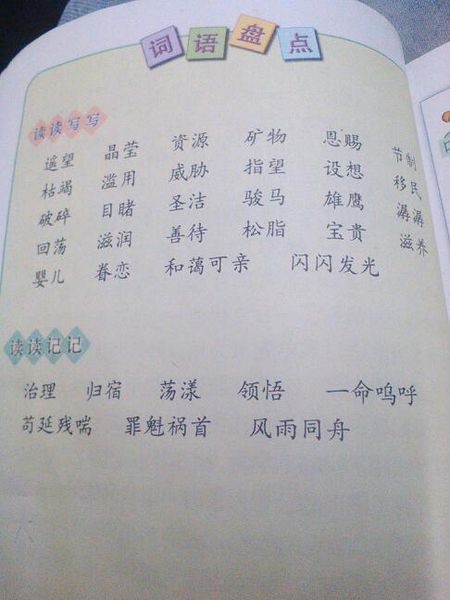 词语盘点
读读写写
遥望 晶莹 资源 矿物 恩赐 节制
枯竭 滥用 威胁 指望 设想 移民
破碎 目睹 圣洁 骏马 雄鹰 潺潺
回荡 滋润 善待 松脂 宝贵 滋养
婴儿 眷恋 和蔼可亲 闪闪发光
读读记记
治理 归宿 荡漾 领悟 一命呜呼
苟延残喘 罪魁祸首 风雨同舟